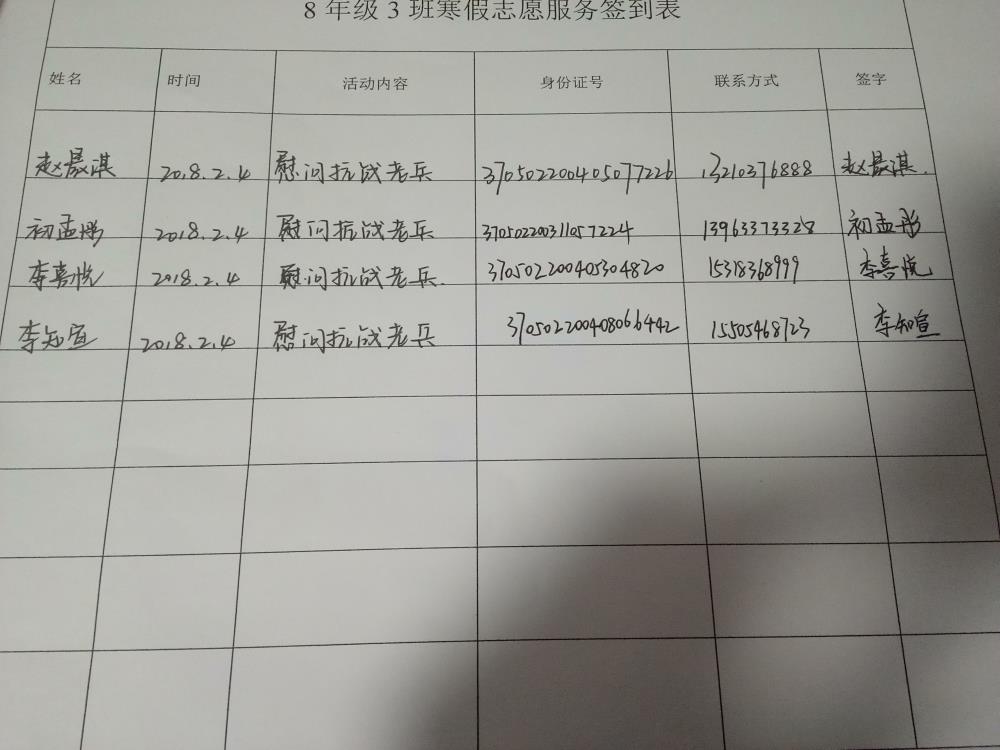 8 年级 3 班寒假志愿服务签到表
姓名 时间 活动内容 身份证号 联系方式 签字
赵晨淇 2018.2.4 慰问抗战老兵 370502200405077226 13210376888 赵晨淇.
初孟彤 2018.2.4 慰问抗战老兵 370502200311057224 13963373328 初孟彤
李喜悦 2018.2.4 慰问抗战老兵. 370502200405304820 15318368999 李喜悦
李知宣 2018.2.4 慰问抗战老兵 370502200408066442 15505468723 李知宣